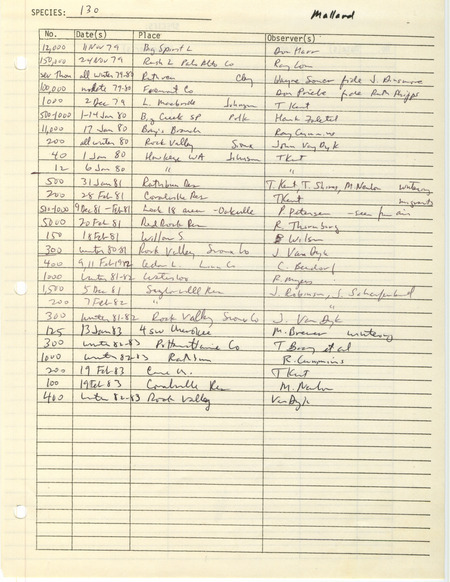 SPECIES: 130 Mallard
No. Date(s) Place Observer(s)
12,000 11 Nov 79 Big Spirit L Don Harr
150,000 24 Nov 79 Rush L Palo Alto Co Ray
sev Thous all winter 79-80 Ruthven Clay Wayne fide J. Dinsmore
100,000 79-80 Fremont Co Don Priebe fide Ruth Phipps
1000 2 Dec 79 L. Macbride Johnson T Kent
500-1000 1-14 Jan 80 Big Creek SP Polk Hank Zaletel
11,000 17 Jan 80 Bays Branch Ray Cummins
200 all winter 80 Rock Valley Sioux John Van Dyk
40 1 Jan 80 Hawkeye WA Johnson T Kent
12 6 Jan 80 " "
500 31 Jan 81 Rathbun Res T. Kent, T. Shires, M. Newlon wintering
200 28 Feb 81 Coralville Res T Kent migrants
500-1000 9 Dec 81-Feb 81 Lock 18 area - Oakville P. Petersen - seen from air
5000 20 Feb 81 Red Rock Res R. Thornburg
150 18 Feb 81 Willow S B Wilson
300 winter 80-81 Rock Valley Sioux Co J. Van Dyk
400 9, 11 Feb 1982 Cedar L. Linn Co C. Bendorf
1000 winter 81-82 Waterloo R. Myers
1,500 5 Dec 81 Saylorville Res J. Robinson, J. Schaufenbuel
200 7 Feb 82 "
300 winter 81-82 Rock Valley Sioux Co J. Van Dyk
125 13 Jan 83 4 SW Cherokee M. Brewer wintering
300 winter 82-83 Pottawattamie Co T Bray et al
1000 winter 82-83 Rathbun R. Cummins
200 19 Feb 83 Cone M. T Kent
100 19 Feb 83 Coralville Res M. Newlon
400 winter 82-83 Rock Valley Van Dyk